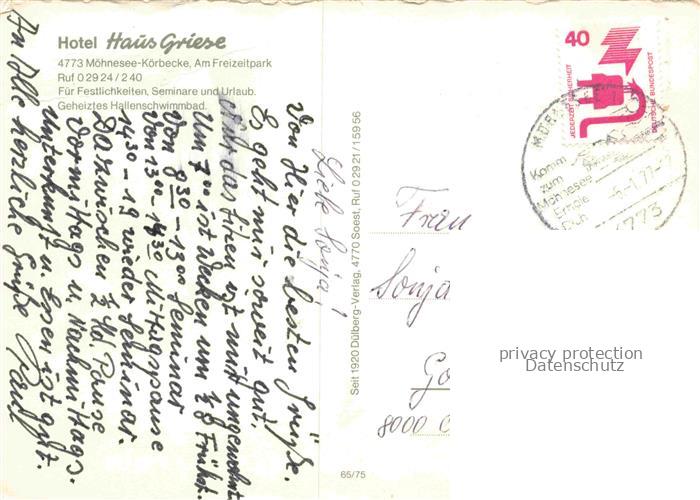 Hotel Haus Griese
4773 Möhnesee-Körbecke, Am Freizeitpark
Ruf 0 29 24 / 2 40
Für Festlichkeiten, Seminare und Urlaub.
Geheiztes Hallenschwimmbad.
Liebe Sonja!
Von Hier die besten Grüße.
Es geht mir soweit gut.
Nur das sitzen ist mir ungewohnt
Um 7 00 ist Wecken um ½ 8 Frühst.
Von 8 30 – 13 00 Seminar
Von 13 00 – 14 30 Mittagspause
14 30 – 19 wieder Seminar.
Dazwischen ½ Std Pause
Vormittags u. Nachmittags.
Unterkunft u. Essen ist gut.
An Alle herzliche Grüße
Seit 1920 Dülberg-Verlag, 4770 Soest, Ruf 0 29 21 / 1 59 56
65/75
40
JEDERZEIT SICHERHEIT
DEUTSCHE BUNDESPOST
Komm
zum
Möhnesee
Erhole
Dich
-6.-1.77-
4773
Frau
Sonja
8000
privacy protection
Datenschutz